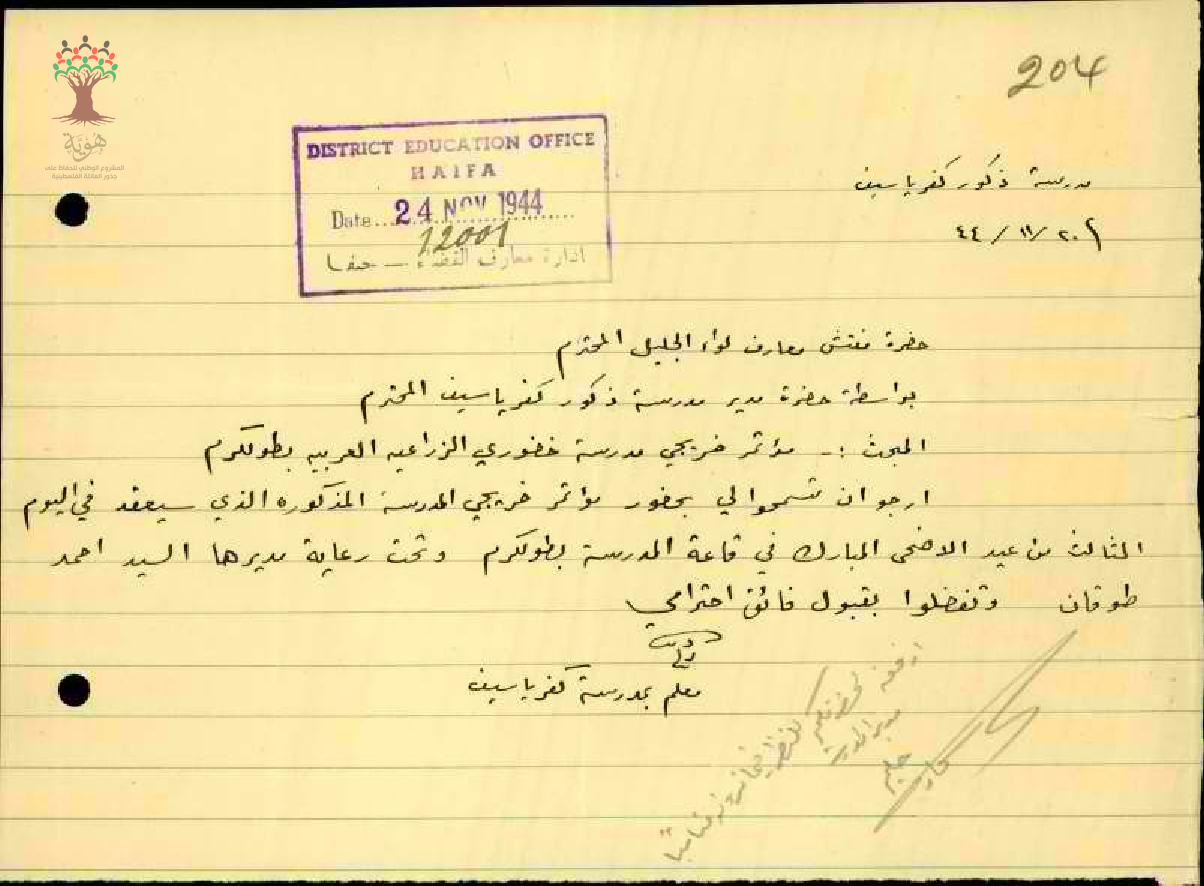 204
هُوِيَّة
المشروع الوطني للحفاظ على
جذور العائلة الفلسطينية
DISTRICT EDUCATION OFFICE
HAIFA
Date 24 NOV 1944
12001
ادارة معارف القضاء — حيفا
مدرسة ذكور كفرياسيف
٢٠/١١/٤٤
حضرة مفتش معارف لواء الجليل المحترم
بواسطة حضرة مدير مدرسة ذكور كفرياسيف المحترم
المبحث :- مؤتمر خريجي مدرسة خضوري الزراعيه العربيه بطولكرم
ارجو ان تسمحوا لي بحضور مؤتمر خريجي المدرسة المذكوره الذي سيعقد في اليوم
الثالث من عيد الاضحى المبارك في قاعة المدرسة بطولكرم وتحت رعاية مديرها السيد احمد
طوقان وتفضلوا بقبول فائق احترامي
معلم بمدرسة كفرياسيف
ارفعه لحضرتكم للنظر فيما ترونه مناسبا
مدير المدرسة